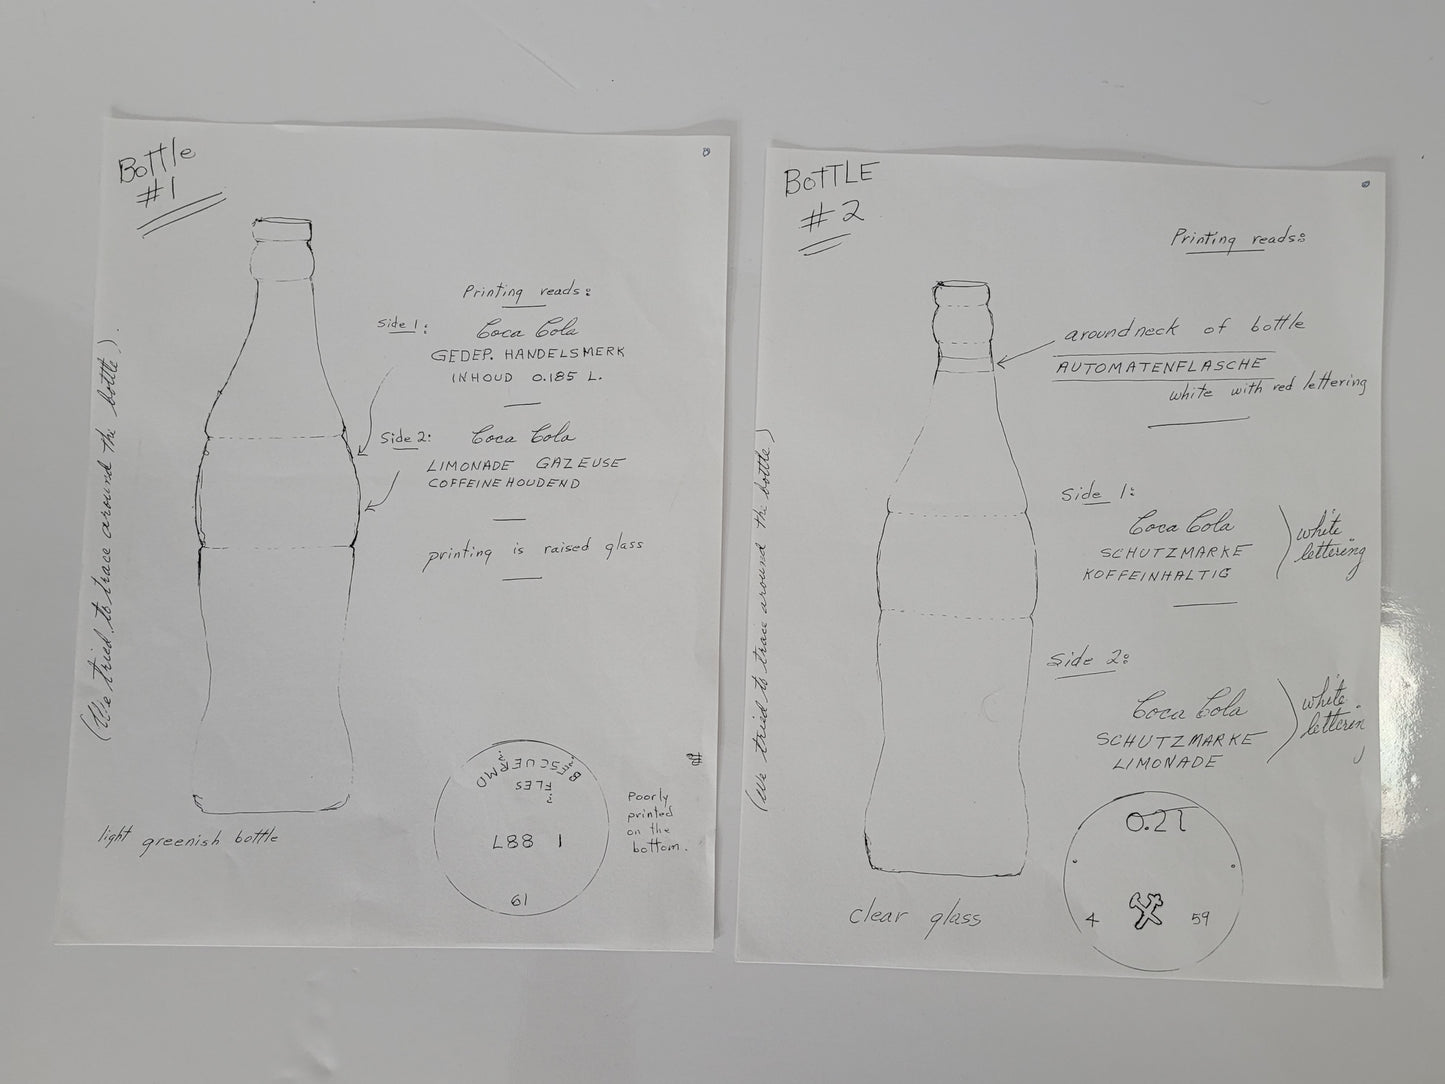 Bottle
#1
Printing reads:
Side 1:
Coca Cola
GEDEP. HANDELSMERK
INHOUD 0.185 L.
Side 2:
Coca Cola
LIMONADE GAZEUSE
COFFEINEHOUDEND
printing is raised glass
(We tried to trace around the bottle).
light greenish bottle
FLES
L88 1
19
Poorly
printed
on the
bottom.
BOTTLE
#2
Printing reads:
around neck of bottle
AUTOMATENFLASCHE
white with red lettering
Side 1:
Coca Cola
SCHUTZMARKE
KOFFEINHALTIG
white
lettering
Side 2:
Coca Cola
SCHUTZMARKE
LIMONADE
white
letterin
(We tried to trace around the bottle)
clear glass
0.2l
4 59